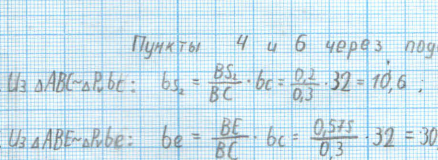 Пункты 4 и 6 через под
Из △ABC~△P₂bc: bs₂ = BS₂/BC · bc = 0,2/0,3 · 32 = 10,6 ;
Из △ABE~△P₂be: be = BE/BC · bc = 0,575/0,3 · 32 = 30